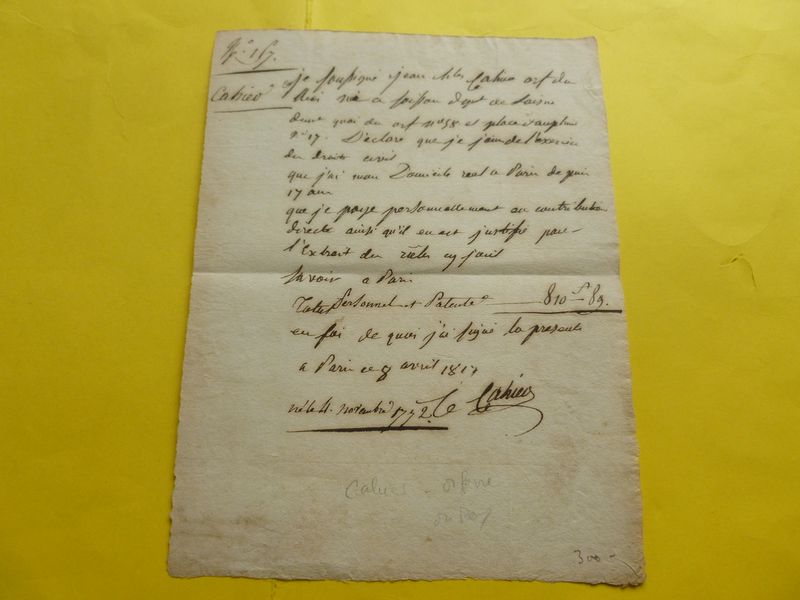 N.° 167.
Cahier
je soussigné jean Ch.les Cahier orf du
Roi né a soisson dept de Laisne
demt quai des orf n° 58 et place dauphine
n° 17. Déclare que je jouis de l'exercice
des droits civil
que j'ai mon Domicile reel a Paris depuis
17 ans
que je paye personnellement au contribution
directe ainsi qu'il en est justifié par
l'Extrait des rôles cy joint
savoir a Paris
Personnel et Patente 810 f 89.
en foi de quoi j'ai signé la presente
a Paris ce 8 avril 1817
né le 4. novembre 1772 Cahier
Cahier - orfevre
du Roy
300 -